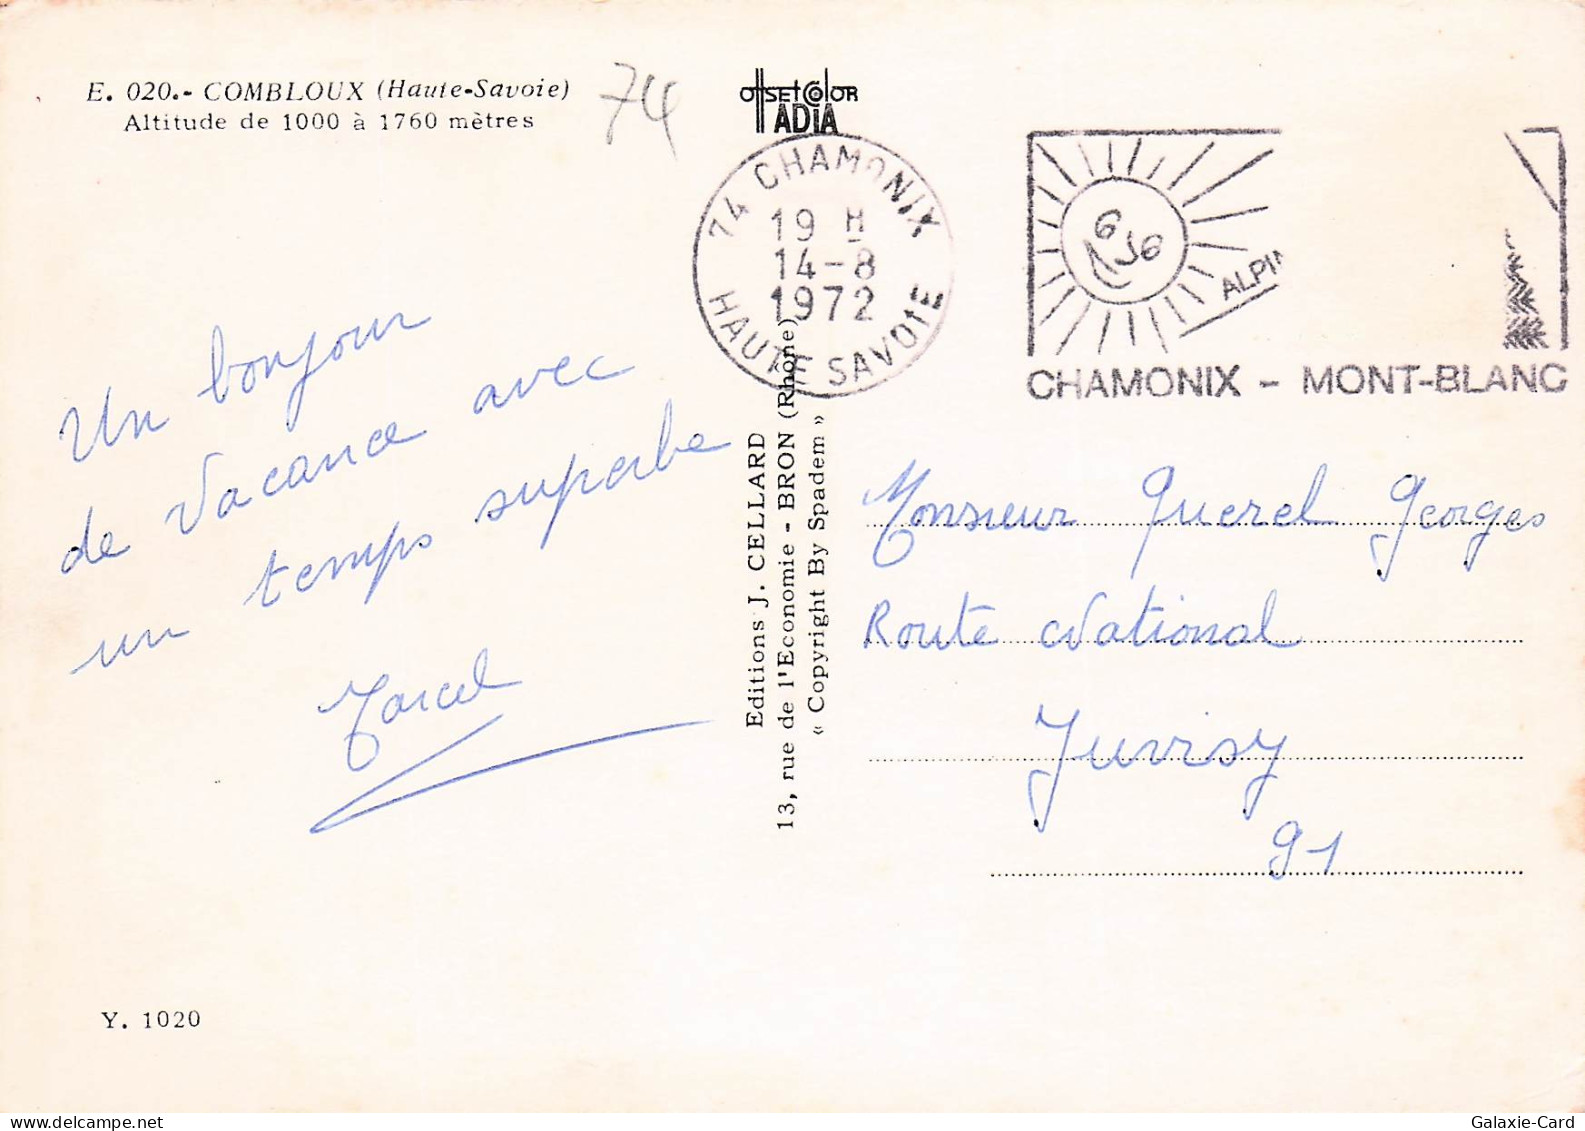 E. 020.- COMBLOUX (Haute-Savoie)
Altitude de 1000 à 1760 mètres
74
OffSET COlOR
ADiA
74 CHAMONIX
19 H
14-8
1972
HAUTE SAVOIE
ALPIN
CHAMONIX - MONT-BLANC
Un bonjour
de vacance avec
un temps superbe
Marcel
Editions J. CELLARD
13, rue de l'Economie - BRON (Rhône)
« Copyright By Spadem »
Monsieur Querel Georges
Route National
Juvisy
91
Y. 1020
Galaxie-Card